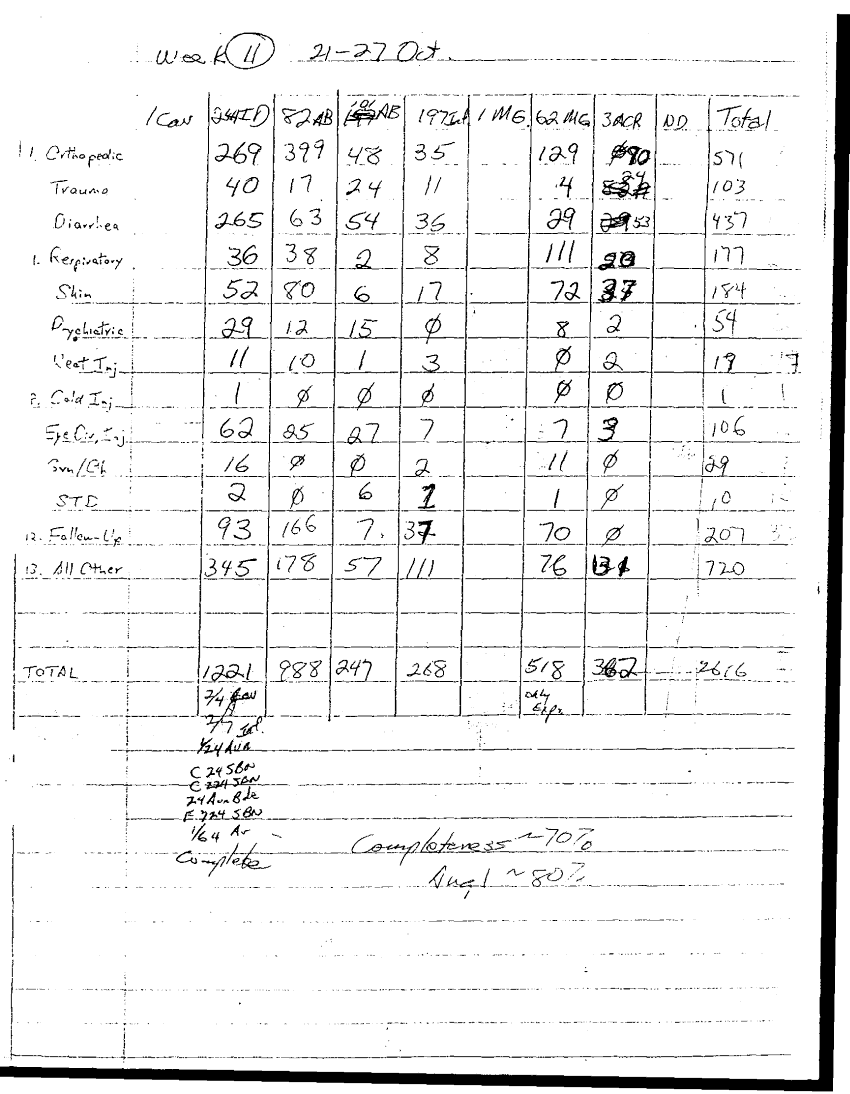 Week 11 21-27 Oct.
1 Cav 24ID 82AB 101AB 197Inf 1 MG 62 MG 3ACR ND Total
1. Orthopedic 269 399 48 35 129 90 571
Trauma 40 17 24 11 4 24 103
Diarrhea 265 63 54 36 29 53 437
1. Respiratory 36 38 2 8 111 20 177
Skin 52 80 6 17 72 37 184
Psychiatric 29 12 15 ∅ 8 2 54
Heat Inj 11 10 1 3 ∅ 2 19
2. Cold Inj 1 ∅ ∅ ∅ ∅ 0 1
Eye Dis, Inj 62 25 27 7 7 3 106
16 ∅ ∅ 2 11 ∅ 29
STD 2 ∅ 6 1 1 ∅ 10
12. Follow-Up 93 166 7. 37 70 ∅ 207
13. All Other 345 178 57 111 76 131 720
TOTAL 1221 988 247 268 518 362 2616
2/4 Cav only
2/7 Inf. Expr
1/24 AVB
C 24 SBN
C 224 SBN
24 Avn Bde
F 724 SBN
1/64 Ar -
Complete
Completeness ~70%
Aug 1 ~80%